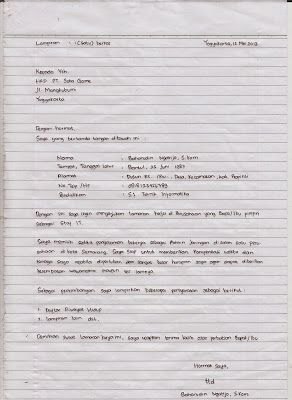 Lampiran : 1 (Satu) berkas Yogyakarta, 12 Mei 2013
Kepada Yth.
HRD PT. Sota Game
Jl. Mangkubumi
Yogyakarta
Dengan hormat,
Saya yang bertanda tangan dibawah ini :
Nama : Baharudin Ngatijo, S.Kom
Tempat, Tanggal lahir : Bantul, 25 Juni 1987
Alamat : Dusun RT. /RW. , Desa, Kecamatan, Kab. Provinsi
No. Tlp /Hp :
Pendidikan : S1 Teknik Informatika
Dengan ini saya ingin mengajukan lamaran kerja di Perusahaan yang Bapak/Ibu pimpin
sebagai Staf IT.
Saya memiliki sedikit pengalaman bekerja sebagai Admin Jaringan di salah satu peru-
sahaan di kota Semarang. Saya siap untuk memberikan waktu dan
tenaga saya apabila diperlukan dan sangat besar harapan saya agar dapat diberikan
kesempatan wawancara maupun tes lainnya.
Sebagai pertimbangan saya lampirkan beberapa persyaratan sebagai berikut :
1. Daftar Riwayat Hidup
2. lampiran lain dst.
Demikian surat lamaran kerja ini, saya ucapkan terima kasih atas perhatian Bapak/Ibu
Hormat Saya,
ttd
Baharudin Ngatijo, S.Kom